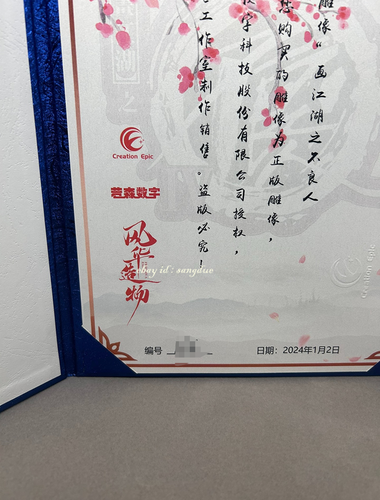 雕像“画江湖之不良人
您购买的雕像为正版雕像，
字科技股份有限公司授权，
工作室制作销售。盗版必究！
Creation Epic
若森数字
风华造物
ebay id : sangduo
Creation Epic
编号
日期：2024年1月2日